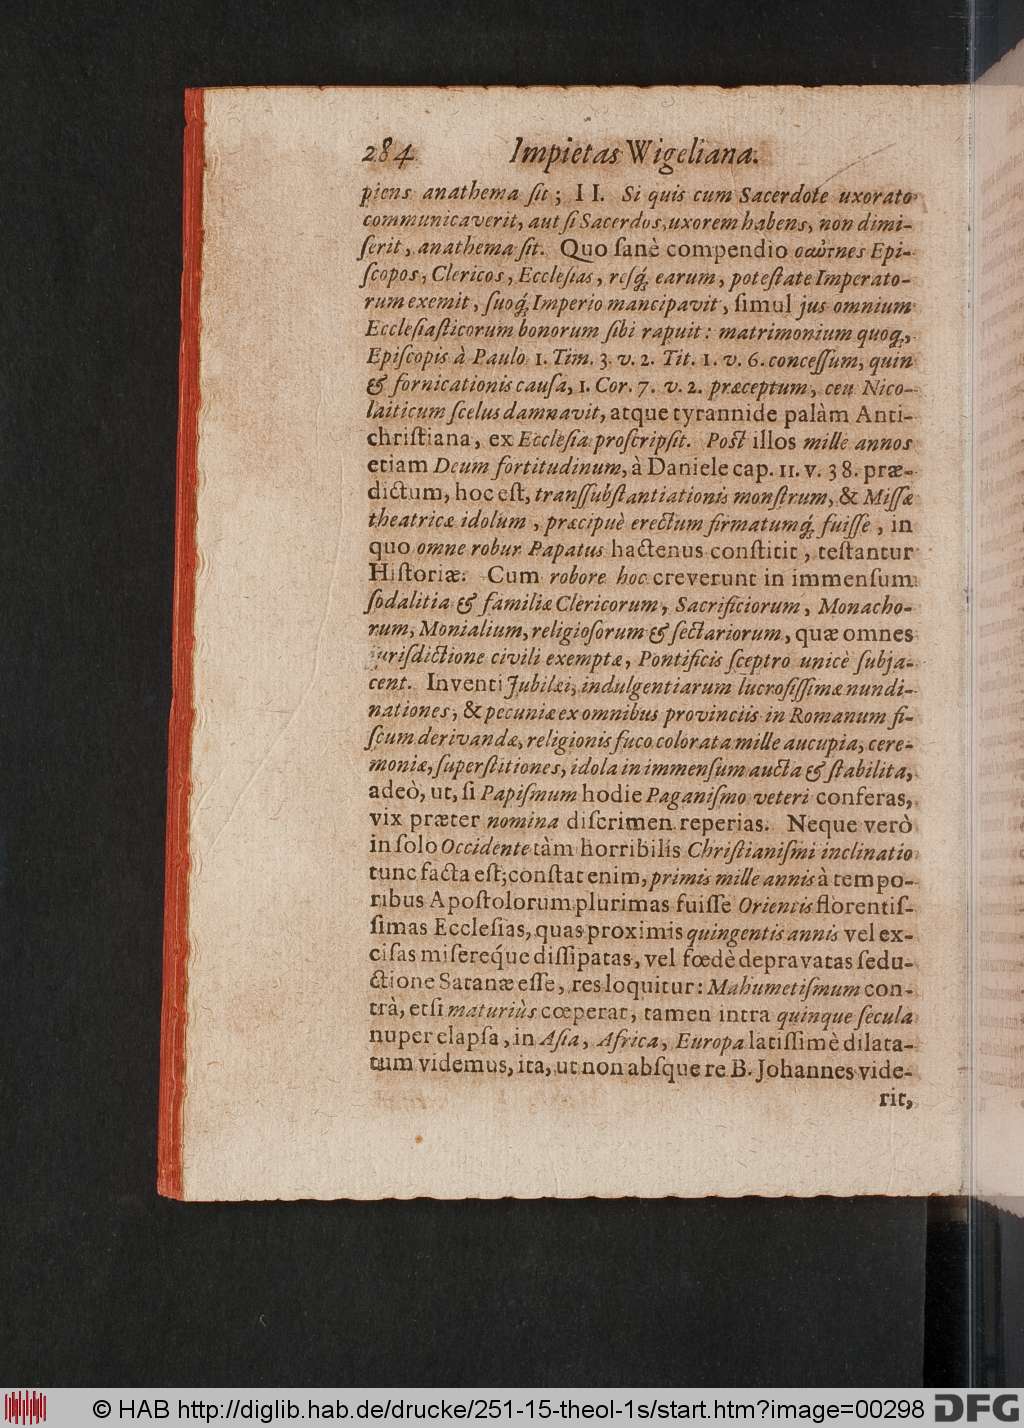 284 Impietas Wigeliana.
piens anathema ſit; II. Si quis cum Sacerdote uxorato
communicaverit, aut ſi Sacerdos, uxorem habens, non dimi-
ſerit, anathema ſit. Quo ſanè compendio Epi-
ſcopos, Clericos, Eccleſias, reſq́; earum, poteſtate Imperato-
rum exemit, ſuoq́; Imperio mancipavit, ſimul jus omnium
Eccleſiaſticorum bonorum ſibi rapuit: matrimonium quoq;,
Epiſcopis à Paulo 1. Tim. 3. v. 2. Tit. 1. v. 6. conceſſum, quin
& fornicationis cauſa, 1. Cor. 7. v. 2. præceptum, ceu Nico-
laiticum ſcelus damnavit, atque tyrannide palàm Anti-
chriſtiana, ex Eccleſia proſcripſit. Poſt illos mille annos
etiam Deum fortitudinum, à Daniele cap. 11. v. 38. præ-
dictum, hoc eſt, transſubſtantiationis monſtrum, & Miſſæ
theatricæ idolum, præcipuè erectum firmatumq́; fuiſſe, in
quo omne robur Papatus hactenus conſtitit, teſtantur
Hiſtoriæ. Cum robore hoc creverunt in immenſum
ſodalitia & familiæ Clericorum, Sacrificiorum, Monacho-
rum, Monialium, religioſorum & ſectariorum, quæ omnes
juriſdictione civili exemptæ, Pontificis ſceptro unicè ſubja-
cent. Inventi Jubilæi, indulgentiarum lucroſiſſimæ nundi-
nationes, & pecuniæ ex omnibus provinciis in Romanum fi-
ſcum derivandæ, religionis fuco colorata mille aucupia, cere-
moniæ, ſuperſtitiones, idola in immenſum aucta & ſtabilita,
adeò, ut, ſi Papiſmum hodie Paganiſmo veteri conferas,
vix præter nomina diſcrimen reperias. Neque verò
in ſolo Occidente tàm horribilis Chriſtianiſmi inclinatio
tunc facta eſt; conſtat enim, primis mille annis à tempo-
ribus Apoſtolorum plurimas fuiſſe Orientis florentiſ-
ſimas Eccleſias, quas proximis quingentis annis vel ex-
ciſas miſereq́ue diſſipatas, vel fœdè depravatas ſedu-
ctione Satanæ eſſe, res loquitur: Mahumetiſmum con-
trà, etſi maturiùs cœperat, tamen intra quinque ſecula
nuper elapſa, in Aſia, Africa, Europa latiſſimè dilata-
tum videmus, ita, ut non abſque re B. Johannes vide-
rit,
© HAB http://diglib.hab.de/drucke/251-15-theol-1s/start.htm?image=00298
DFG